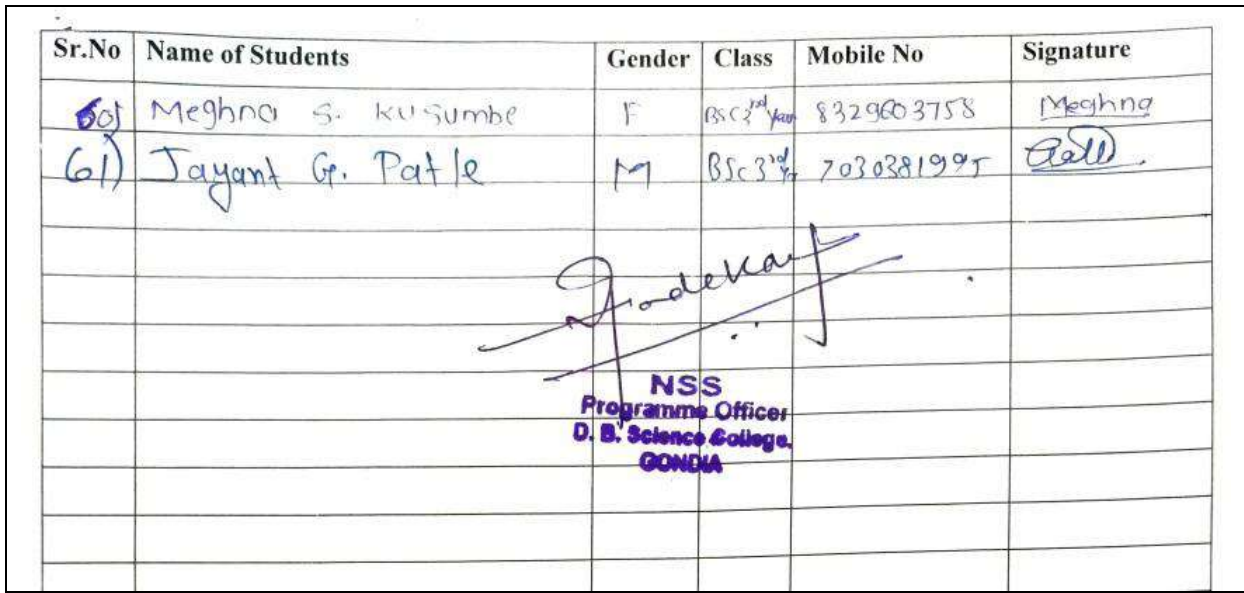 Sr.No Name of Students Gender Class Mobile No Signature
60) Meghna S. Kusumbe F BSc 3rd Year 8329603758 Meghna
61) Jayant G. Patle M BSc 3rd Yr 7030381995
NSS
Programme Officer
D. B. Science College,
GONDIA